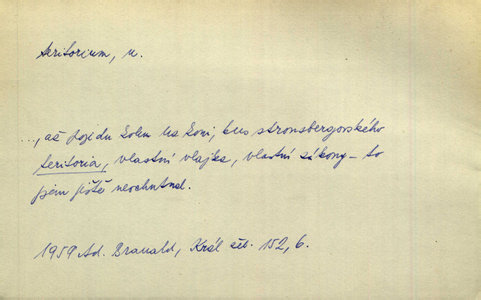 teritorium, n.
..., až pojedu kolem na koni, kus strousbergovského
teritoria, vlastní vlajka, vlastní zákony – to
jsem ještě neochutnal.
1959 Ad. Branald, Král žel. 152, 6.